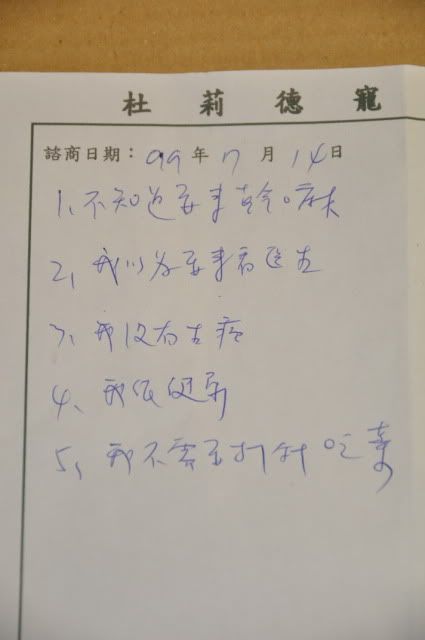 杜莉德寵
諮商日期：99年7月14日
1、不知道要來幹嘛
2、我以为要來看医生
3、我没有生病
4、我很健康
5、我不需要打針吃藥